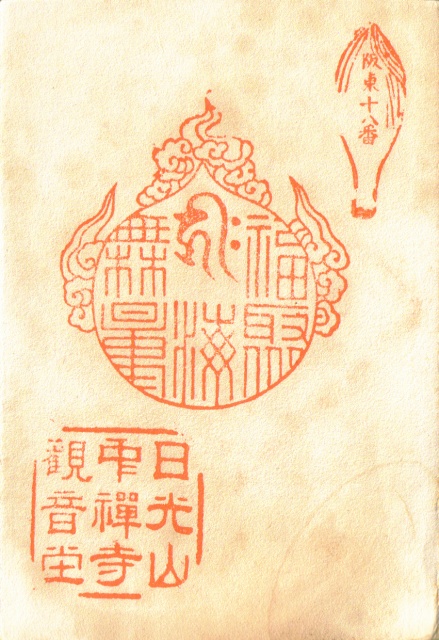 阪東十八番
福聚
海
無量
日光山
中禪寺
觀音堂